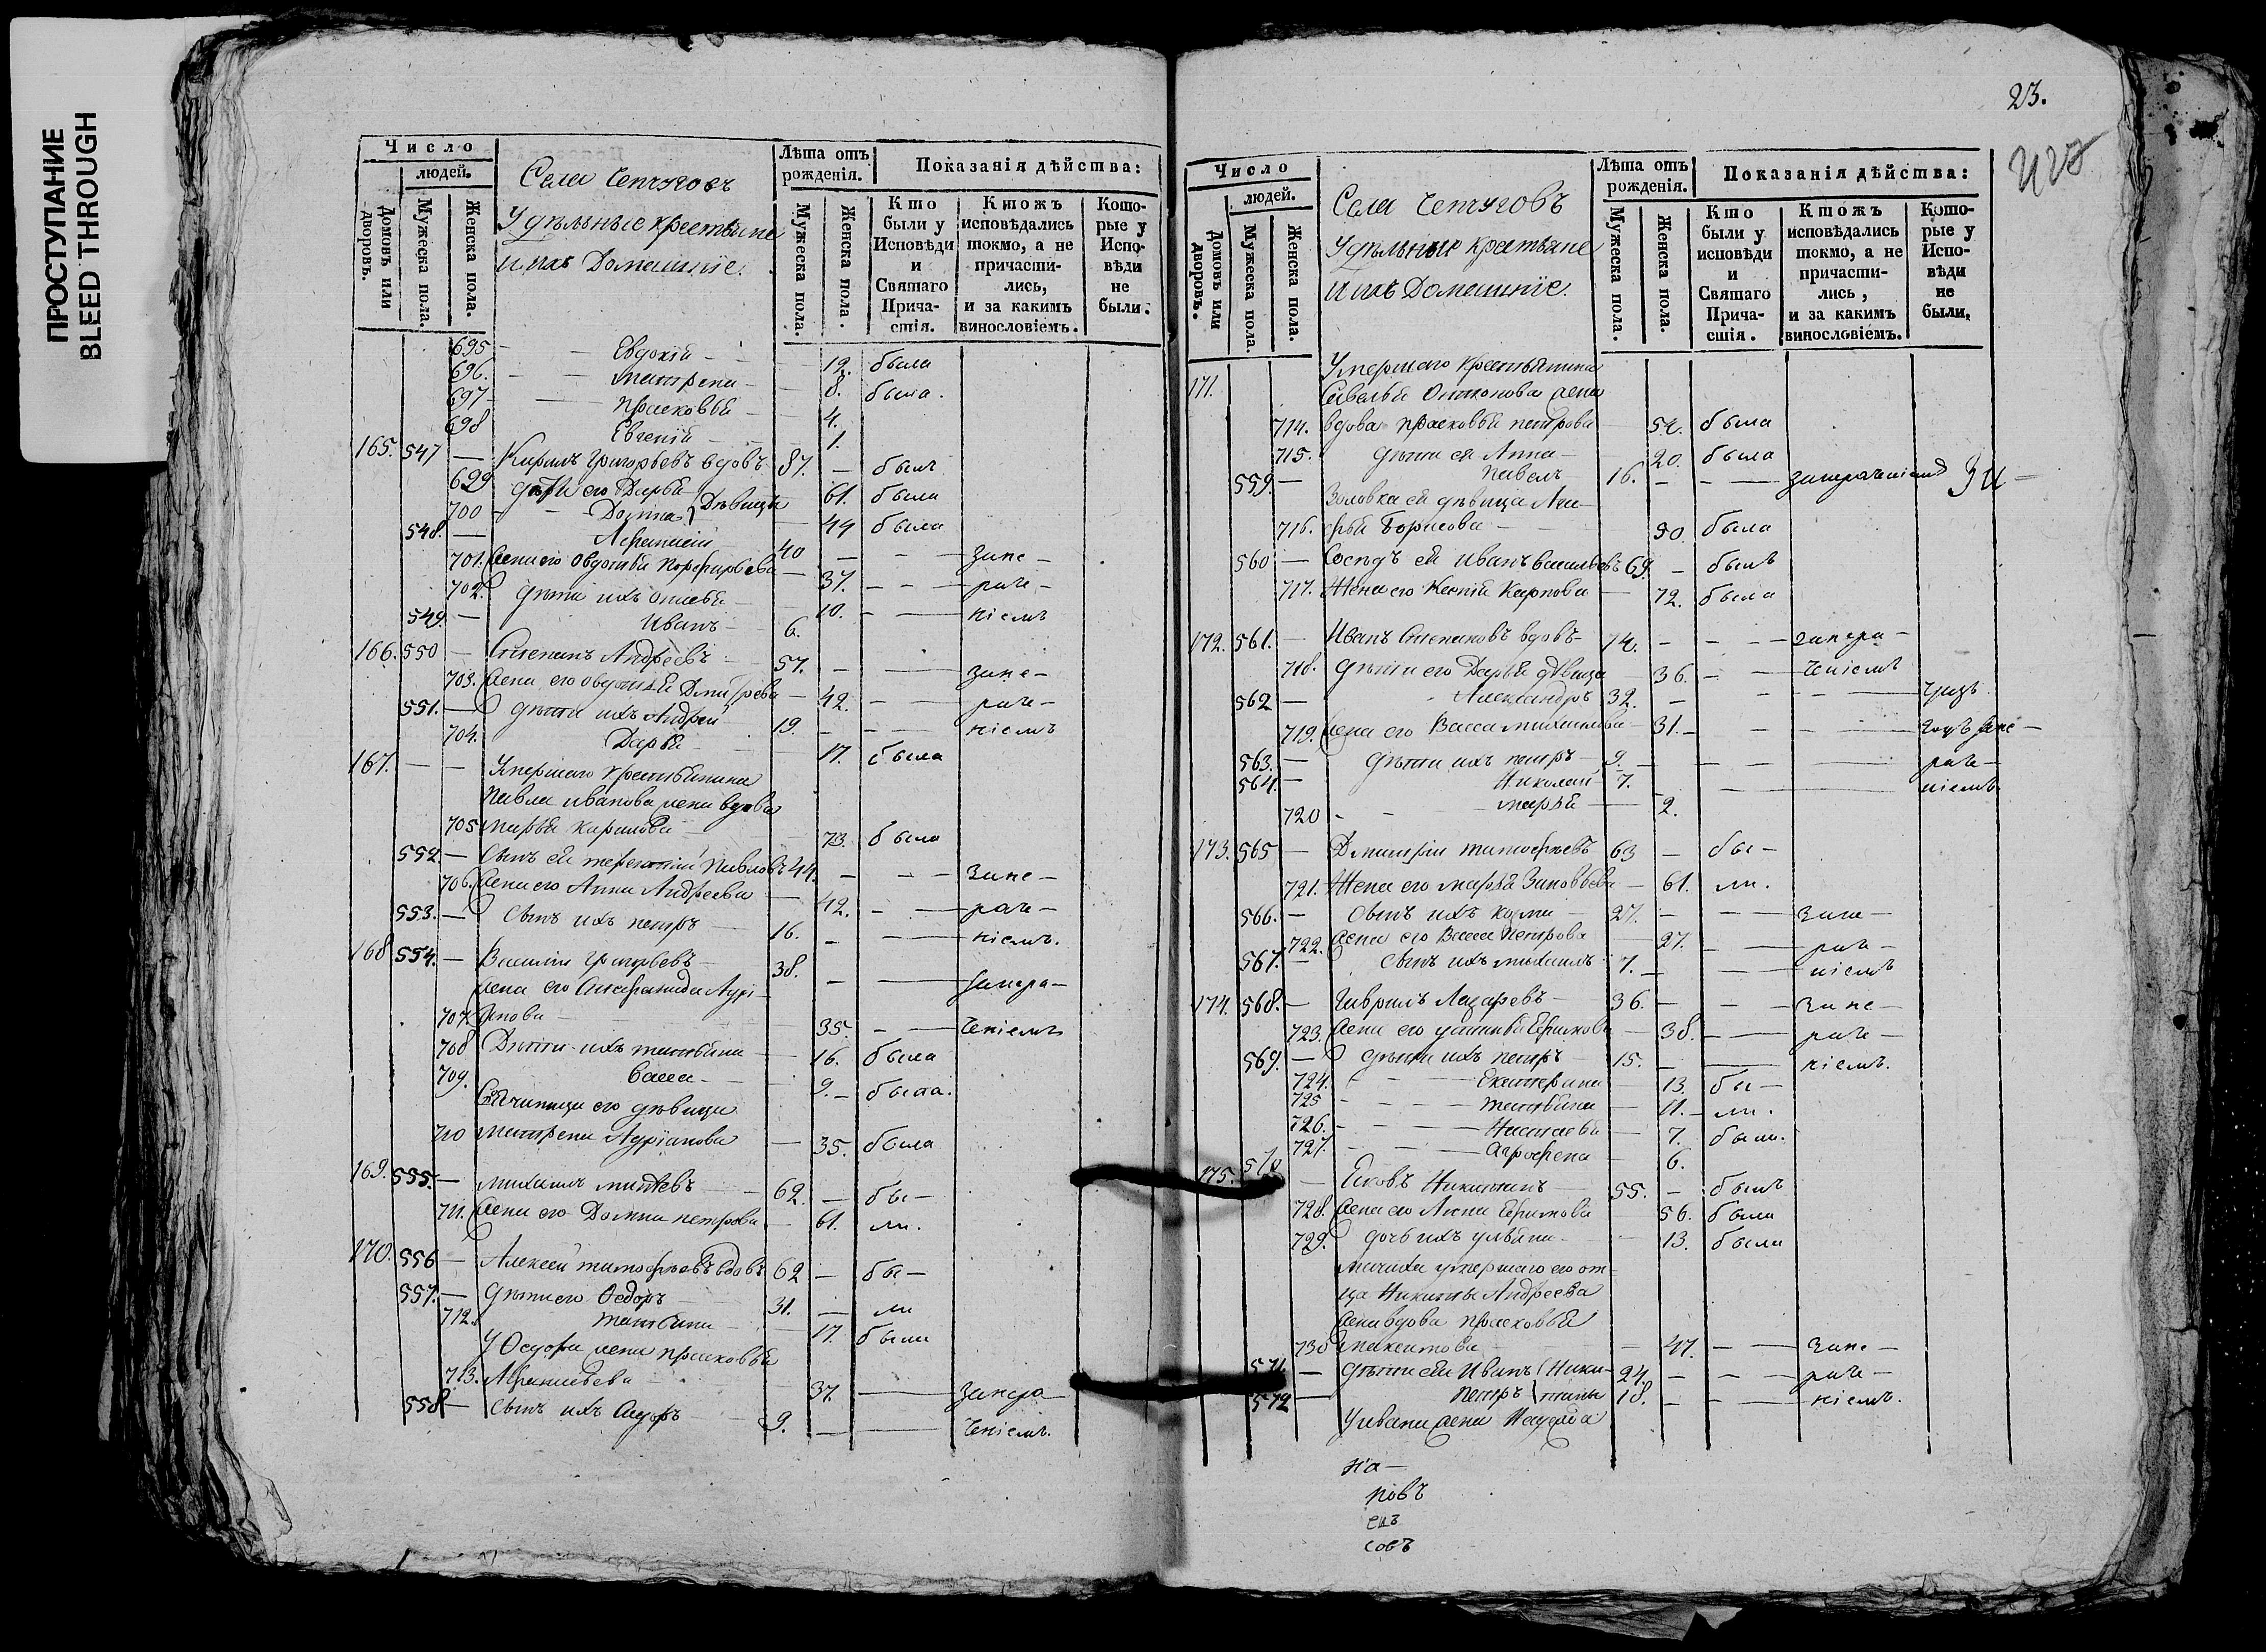 ПРОСТУПАНИЕ
BLEED THROUGH
Число
людей.
Домовъ или дворовъ.
Мужеска пола.
Женска пола.
Села Чепчуговъ
Удѣльные крестьяне
и ихъ Домашніе.
Лѣта отъ рожденія.
Мужеска пола.
Женска пола.
Показанія дѣйства:
Кто были у Исповѣди и Святаго Причастія.
Ктожъ исповѣдались токмо, а не причастились, и за какимъ винословіемъ.
Которые у Исповѣди не были.
695 — — Евдокія — 12. была
696. — — Матрена — 8. была.
697 — Прасковья — 4.
698 Евгенія — 1.
165. 547 — Кирилъ Григорьевъ вдовъ 87. — былъ
699 дѣти его Дарья 61. была
700 — — Домна } Дѣвицы 44 была
548. — Афанасій 40 — — — запе—
701. Жена его Овдотья Порфирьева — 37. — — раче—
702. дѣти ихъ — 10. — — ніемъ
549. — Иванъ — 6.
166. 550 — Степанъ Андреевъ 57. — — запе—
703. Жена его Овдотья Дмитрева — 42. — — раче—
551. — дѣти ихъ Андрей 19. — — ніемъ
704. Дарья — 17. была
167. — — Умершаго крестьянина
Павла Иванова жена вдова
705 Марья Карпова — 73. была
552. — Сынъ ея Терентій Павловъ 44. — — — запе—
706. Жена его Анна Андреева — 42. — — раче—
553. — Сынъ ихъ Петръ 16. — — ніемъ.
168 554. — Василій Григорьевъ — 38. — — запера—
жена его Степанида Андрі—
707. янова — 35. — — ченіемъ
708 Дѣти ихъ Татьяна — 16. была
709. Васса — 9. — была.
Своячиница его дѣвица
710 Матрена Андріанова — 35. была
169. 555. — Михаилъ 62. — бы—
711. Жена его Домна Петрова — 61. ли.
170. 556 — Алексей Тимофеевъ вдовъ 62 — бы—
557. — Дѣти его Ѳедоръ 31. — ли
712. Татьяна — 17. была
У Ѳедора жена Прасковья
713. Афанасьева — 37. — запера
558 — Сынъ ихъ Сидоръ — 9. — — ченіемъ.
23.
Число
людей.
Домовъ или дворовъ.
Мужеска пола.
Женска пола.
Села Чепчуговъ
Удѣльные крестьяне
и ихъ Домашніе.
Лѣта отъ рожденія.
Мужеска пола.
Женска пола.
Показанія дѣйства:
Кто были у исповѣди и Святаго Причастія.
Ктожъ исповѣдались токмо, а не причастились, и за какимъ винословіемъ.
Которые у Исповѣди не были.
171. Умершаго крестьянина
Савелья жена
714. вдова Прасковья Петрова 52. была
715. дѣти ея Анна — 20. была
559. — Павелъ 16. — — —
Золовка ея дѣвица Ага—
716. фья Борисова — 90. была
560 — Сосѣдъ ея Иванъ Васильевъ 69. — былъ
717. Жена его Ксенія Карпова — 72. была
172. 561. — Иванъ Степановъ вдовъ 74. — — — запера—
718. дѣти его Дарья дѣвица 36. — — ченіемъ
562 — Александръ 32. — — — —
719. Жена его Васса — 31. — — —
563. — дѣти ихъ Петръ — 9. — — — — раче—
564. — Николай 7. — — ніемъ
720 — — Марья — 2.
173. 565 — Дмитрій Тимофѣевъ 63 — бы—
721. Жена его Марья Зиновьева — 61. ли.
566. — Сынъ ихъ 27. — — — запе—
722. Жена его Васса Петрова — 27. — — раче—
567. — Сынъ ихъ Михаилъ 7. — — ніемъ
174. 568. — Гаврилъ Лазаревъ — 36. — — запе—
723. Жена его Устинья — 38. — — раче—
569. — дѣти ихъ Петръ — 15. — — ніемъ.
724. — — Екатерина — 13. бы—
725 — — Татьяна — 11. — ли.
726. — — Настасья — 7. были.
727. — — Агрофена — 6.
175. 570 — Яковъ Никитинъ — 55. — былъ
728. Жена его — 56. была
729. дочь ихъ Ульяна — 13. была
Мачиха умершаго его от—
ца Никиты Андреева
жена вдова Прасковья
730 — 47. — — запе—
571 — Дѣти ея Иванъ } Ники— 24. — — — раче—
572 — Петръ } тины 18. — — — ніемъ.
У Ивана жена
на—
повъ
совъ